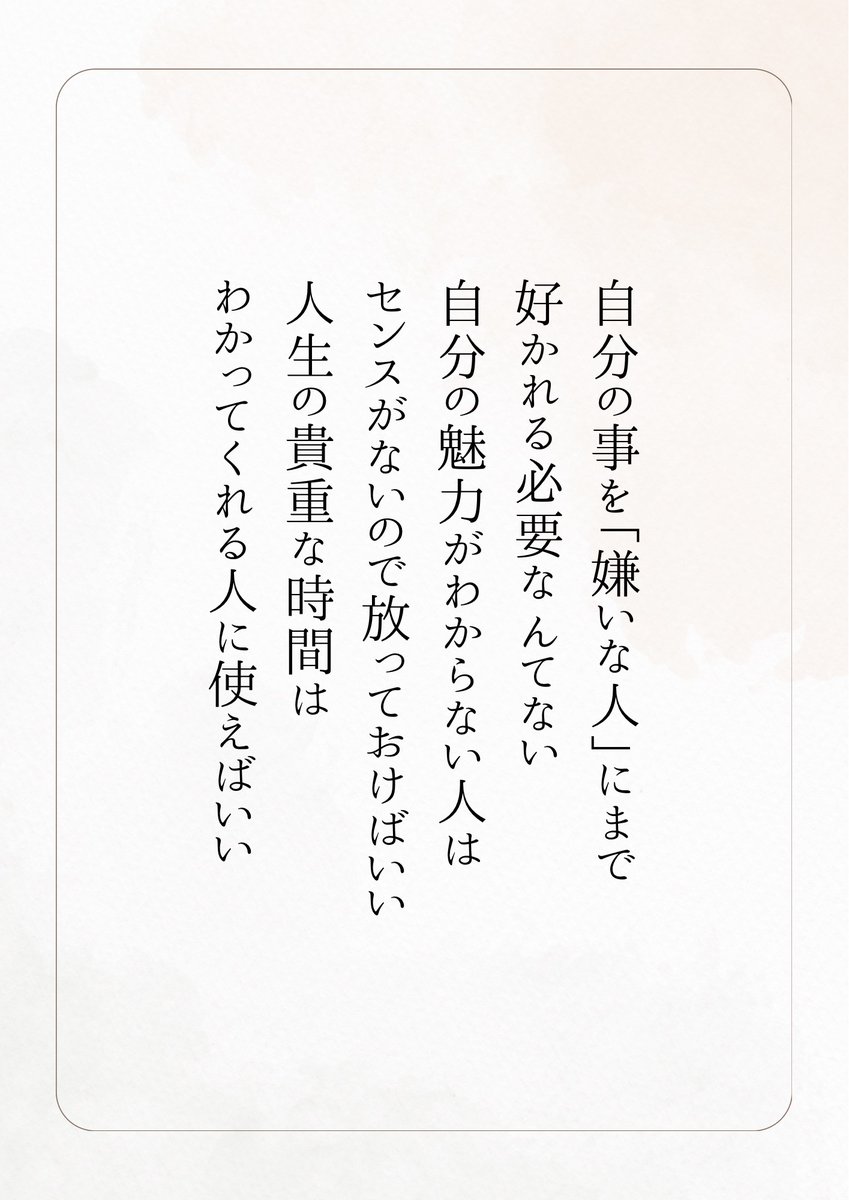 自分の事を「嫌いな人」にまで
好かれる必要なんてない
自分の魅力がわからない人は
センスがないので放っておけばいい
人生の貴重な時間は
わかってくれる人に使えばいい